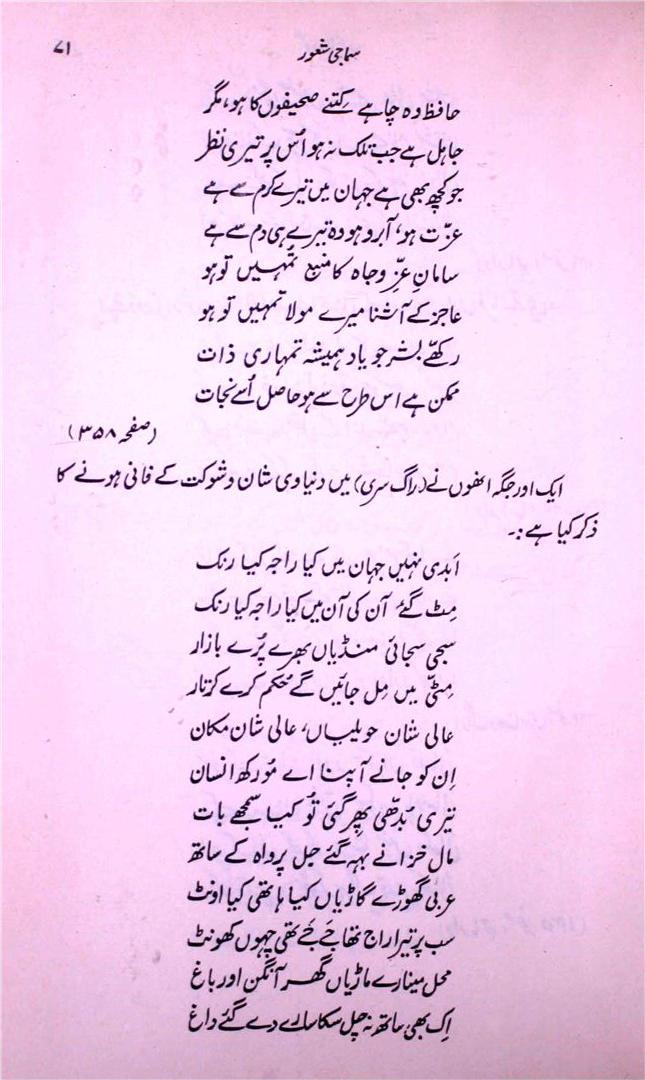 سماجی شعور
۷۱
حافظ وہ چاہے کِتنے صحیفوں کا ہو، مگر
جاہل ہے جب تلک نہ ہو اُس پر تیری نظر
جو کچھ بھی ہے جہان میں تیرے کرم سے ہے
عزّت ہو، آبرو ہو وہ تیرے ہی دم سے ہے
سامانِ عزّ و جاہ کا منبع تُمہیں تو ہو
عاجز کے آشنا میرے مولا تمہیں تو ہو
رکھّے بشر جو یاد ہمیشہ تمہاری ذات
ممکن ہے اس طرح سے ہو حاصل اُسے نجات
(صفحہ ۳۵۸)
ایک اور جگہ انھوں نے (راگ سری) میں دنیاوی شان و شوکت کے فانی ہونے کا
ذکر کیا ہے :۔
اَبدی نہیں جہان میں کیا راجہ کیا رنک
مِٹ گئے آن کی آن میں کیا راجہ کیا رنک
سجی سجائی منڈیاں بھرے پُرے بازار
مِٹّی میں مِل جائیں گے حُکم کرے کرتار
عالی شان حویلیاں، عالی شان مکان
اِن کو جانے آپنا اے مُورکھ انسان
تیری بُدّھی پھر گئی تُو کیا سمجھے بات
مال خزانے بہہ گئے جل پرواہ کے ساتھ
عربی گھوڑے گاڑیاں کیا ہاتھی کیا اونٹ
سب پر تیرا راج تھا جَے جَے تھی چہوں کھونٹ
محل مینارے ماڑیاں گھر آنگن اور باغ
اِک بھی ساتھ نہ چل سکا سارے دے گئے داغ